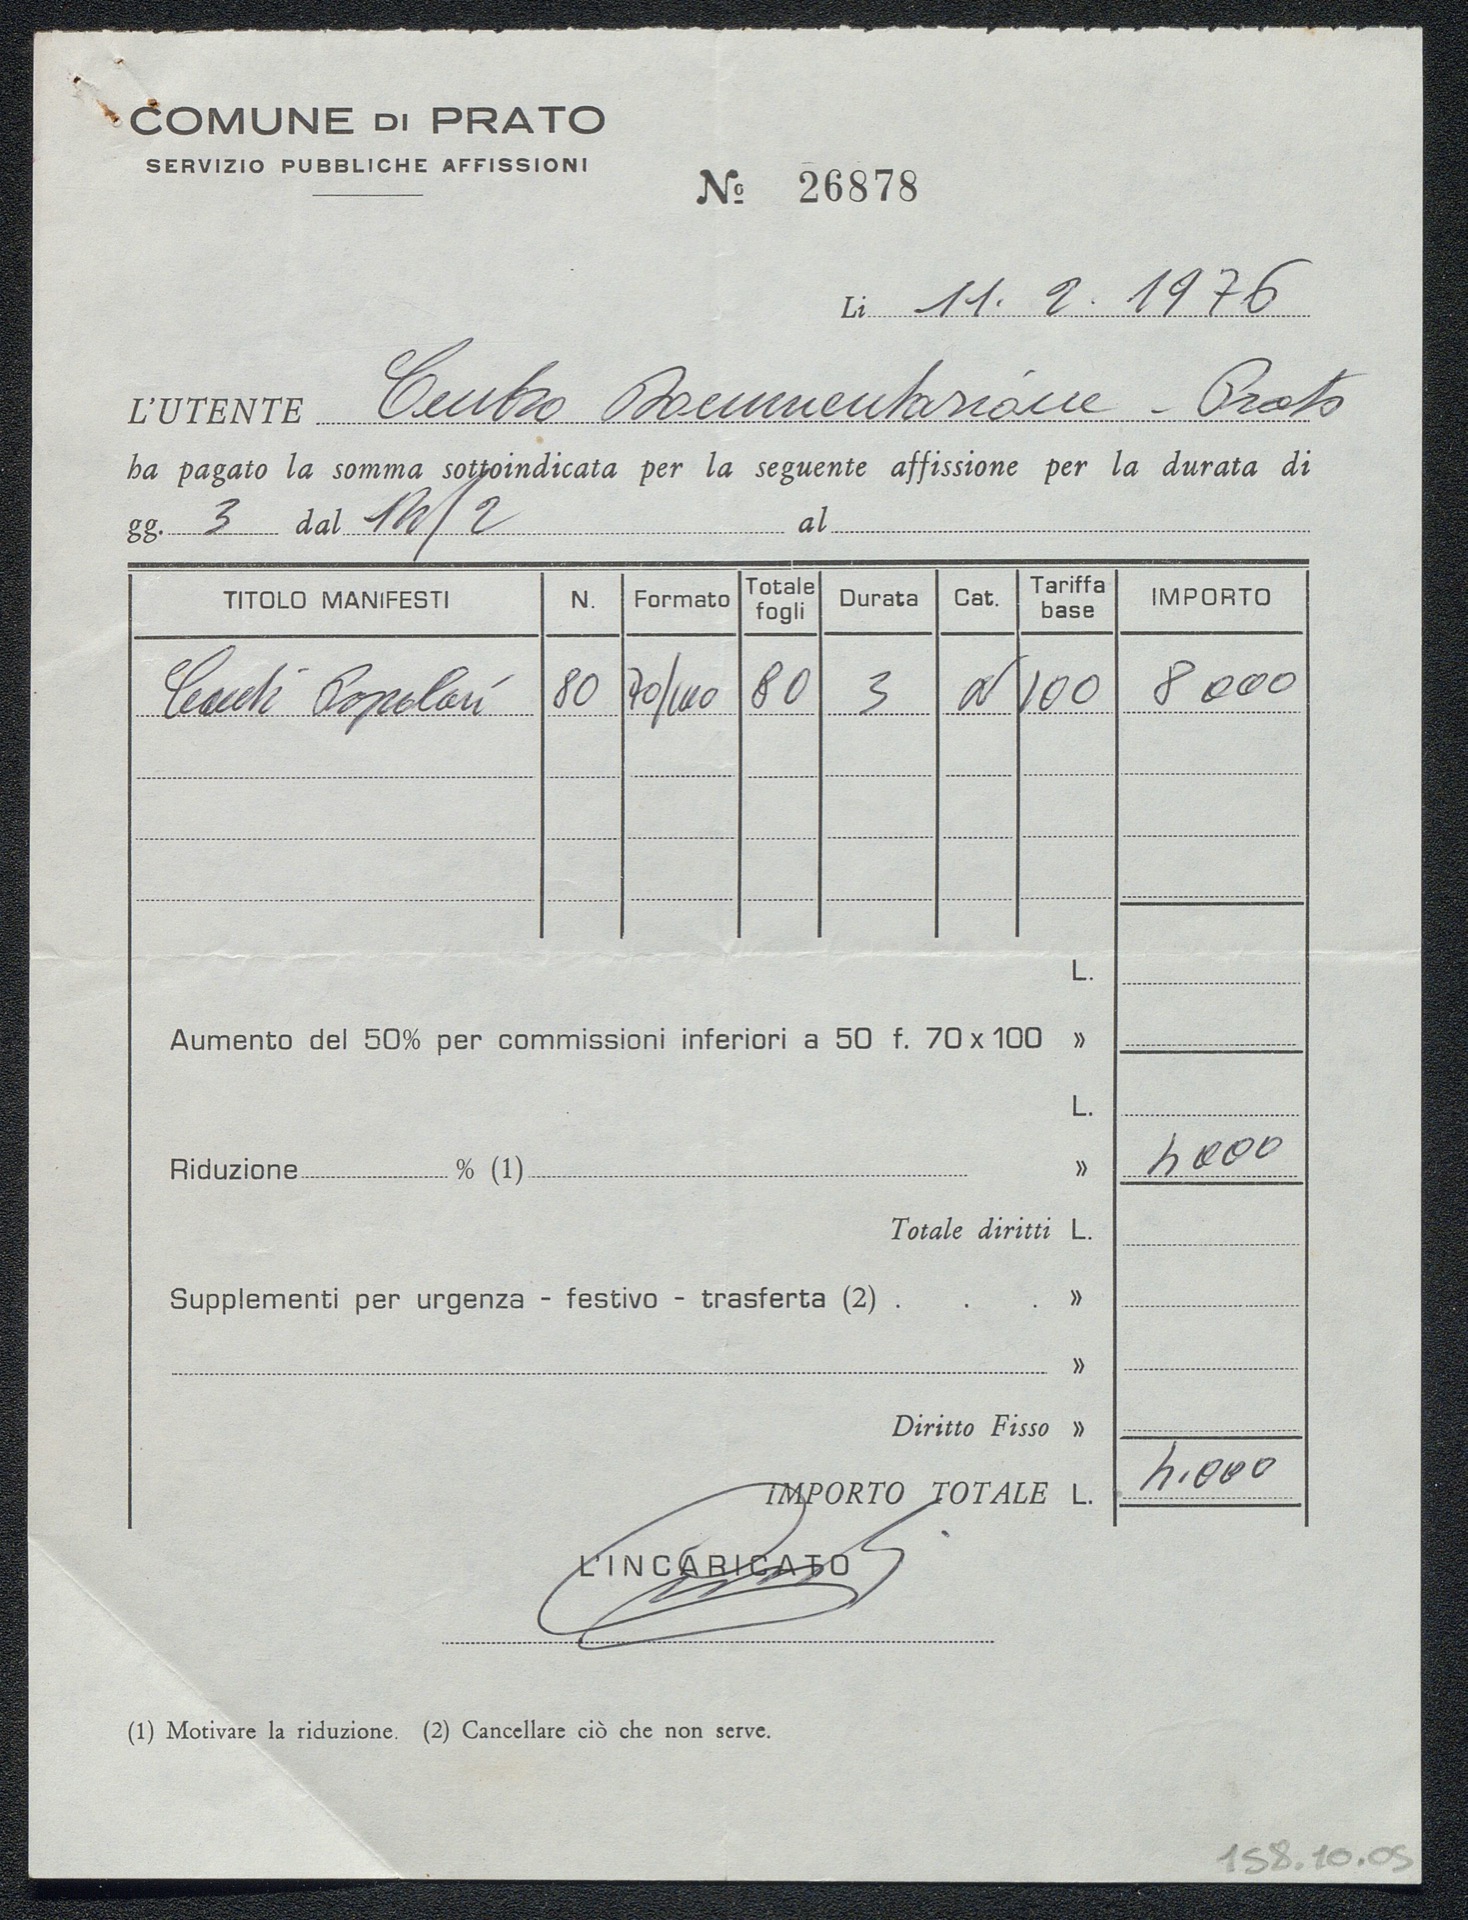 COMUNE DI PRATO
SERVIZIO PUBBLICHE AFFISSIONI
Nº 26878
Li 11. 2. 1976
L'UTENTE Centro Documentazione - Prato
ha pagato la somma sottoindicata per la seguente affissione per la durata di
gg. 3 dal 14/2 al
TITOLO MANIFESTI N. Formato Totale fogli Durata Cat. Tariffa base IMPORTO
Canti Popolari 80 70/100 80 3 100 8000
L.
Aumento del 50% per commissioni inferiori a 50 f. 70 x 100 »
L.
Riduzione % (1) » 4000
Totale diritti L.
Supplementi per urgenza - festivo - trasferta (2) . . . »
»
Diritto Fisso »
IMPORTO TOTALE L. 4.000
L'INCARICATO
(1) Motivare la riduzione. (2) Cancellare ciò che non serve.
158.10.05